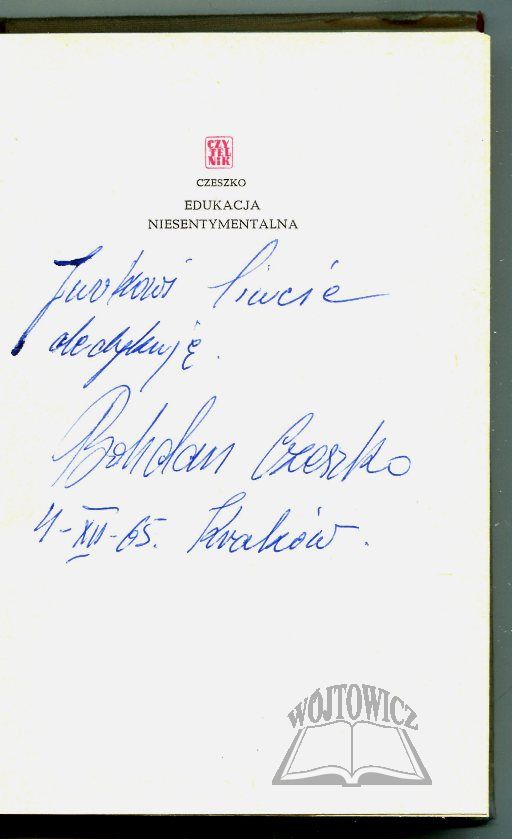 CZY
TEL
NIK
CZESZKO
EDUKACJA
NIESENTYMENTALNA
dedykuję.
Bohdan Czeszko
4-XII-65. Kraków.
WÓJTOWICZ